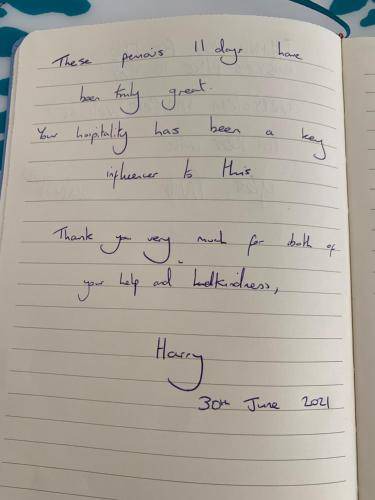 These pervious 11 days have
been truly great.
Your hospitality has been a key
influencer to this.
Thank you very much for both of
your help and kindness,
Harry
30th June 2021